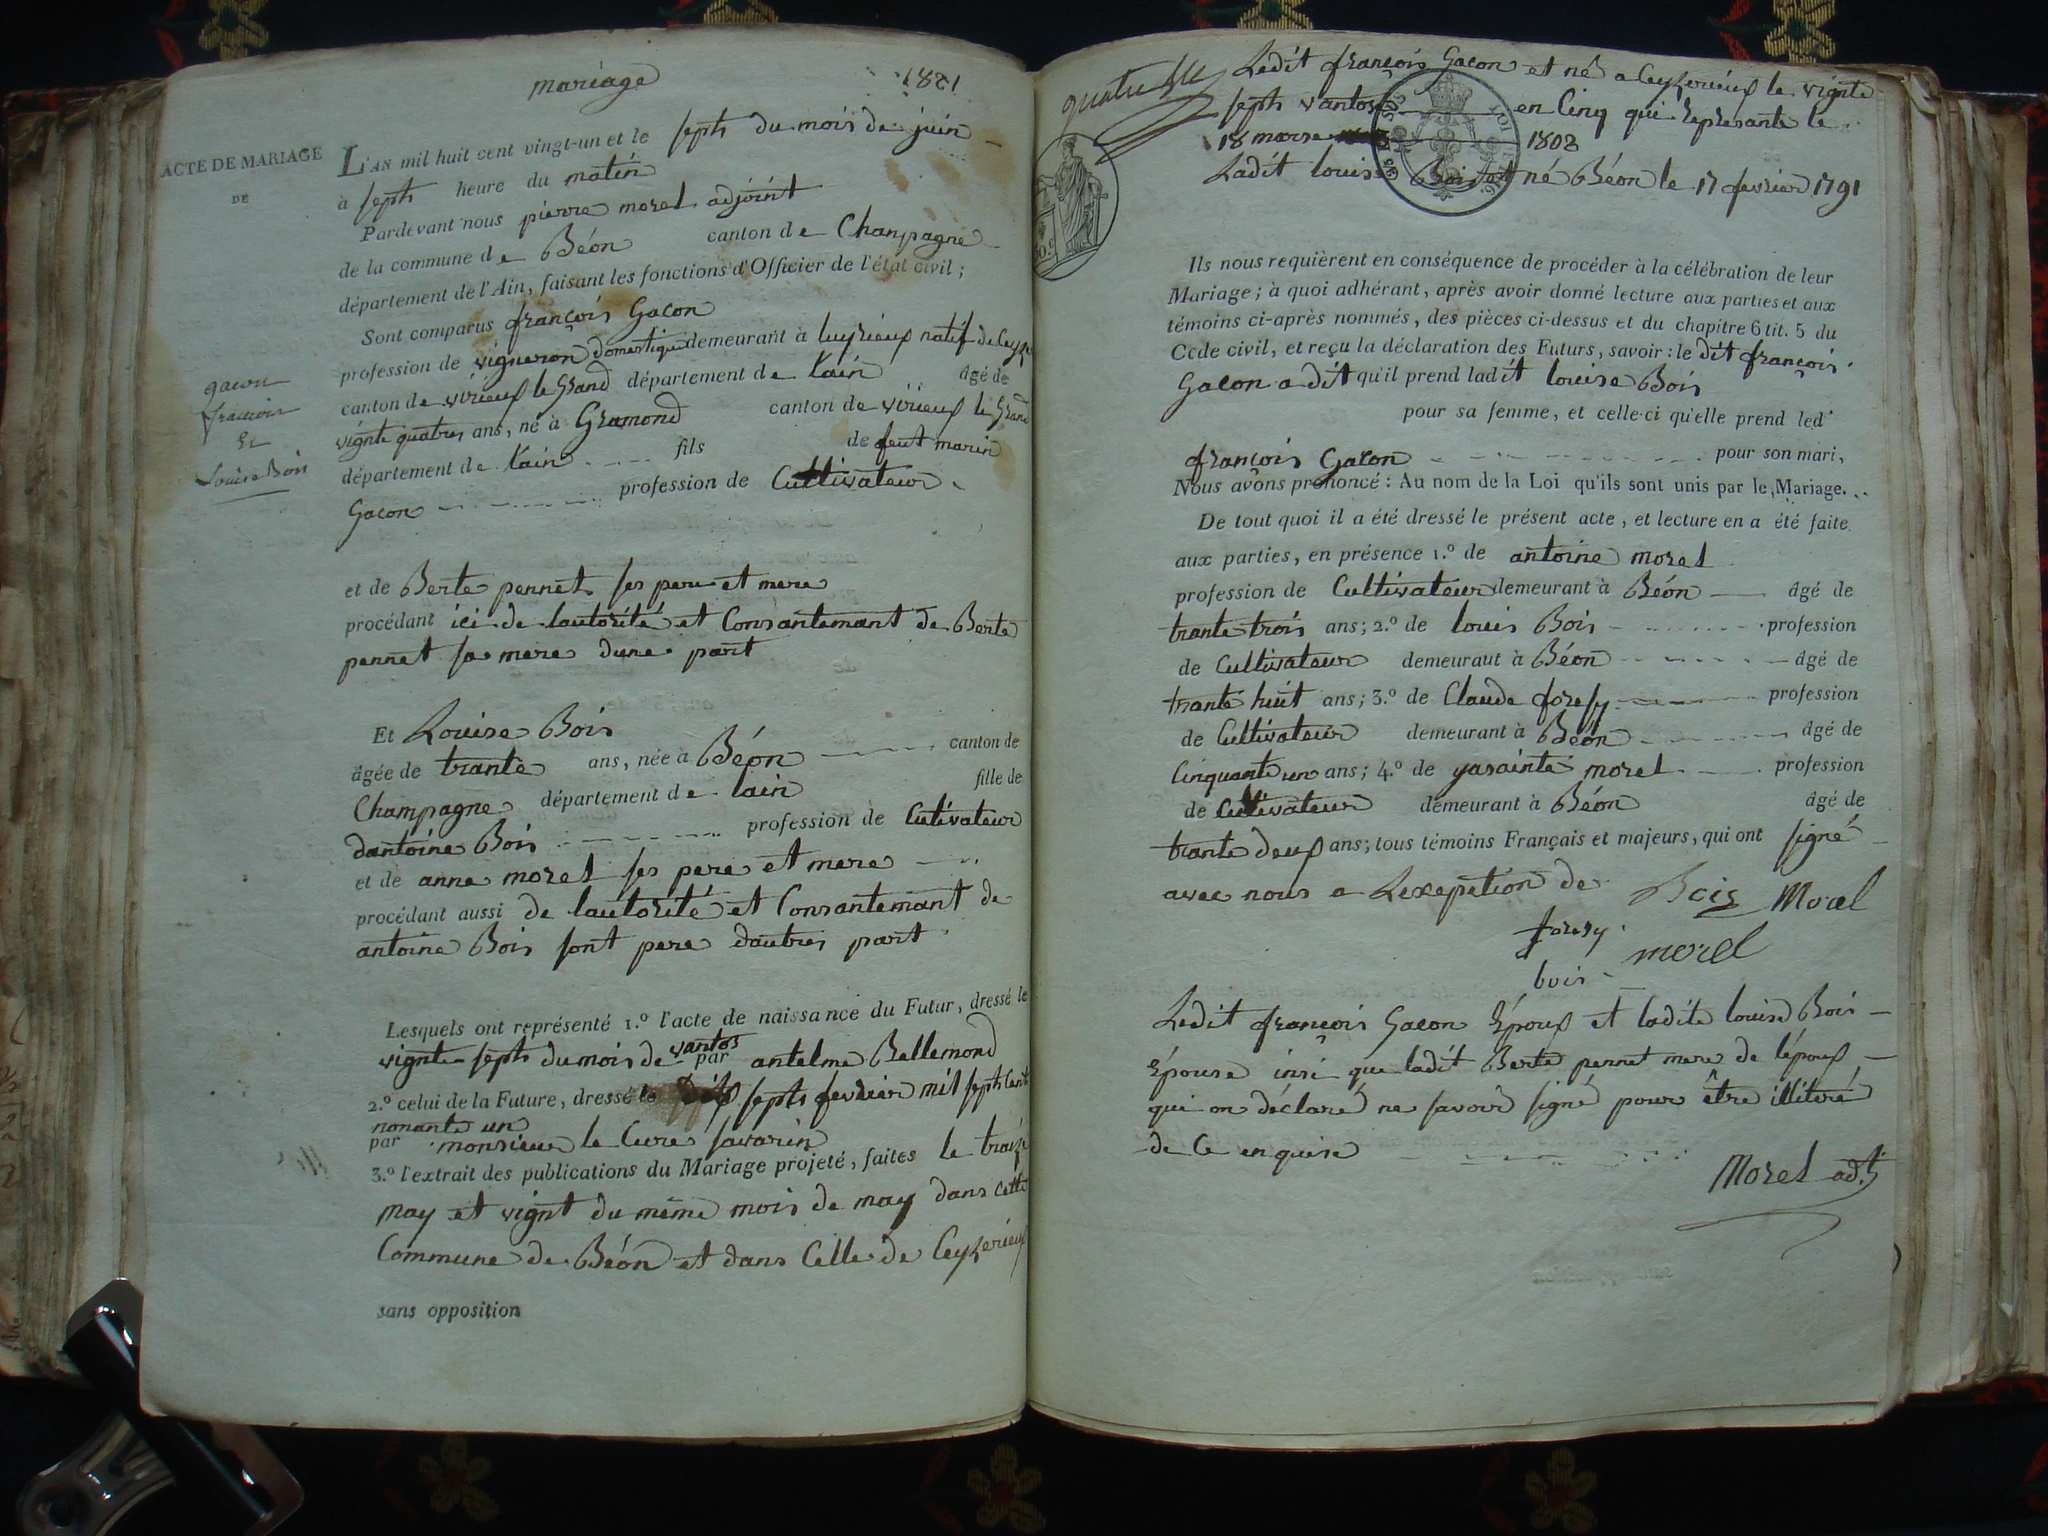 mariage 1821
ACTE DE MARIAGE
DE
gacon
francois
et
Louise Bois
L'AN mil huit cent vingt-un et le septs du mois de juin
à septs heure du matin
Pardevant nous pierre morel adjoint
de la commune de Béon canton de Champagne
département de l'Ain, faisant les fonctions d'Officier de l'état civil ;
Sont comparus françois Gacon
profession de vigneron domestique demeurant à luyrieux natif de Ceyze
canton de virieux le Grand département de lain âgé de
vignte quatres ans, né à Gramond canton de virieux le Grand
département de lain fils de feut marin
Gacon profession de Cultivateur
et de Berte pennet ses pere et mere
procédant ici de lautorité et Consantemant de Berte
pennet sa mere dune part
Et Louise Bois
âgée de trante ans, née à Béon canton de
Champagne département de lain fille de
dantoine Bois profession de Cultivateur
et de anne morel ses pere et mere
procédant aussi de lautorité et Consantemant de
antoine Bois sont pere dautres part
Lesquels ont représenté 1.º l'acte de naissance du Futur, dressé le
vignte septs du mois de vantos par antelme Bellemond
2.º celui de la Future, dressé le dix septs fevrier mil septs cent
nonante un
par monsieur le Cure savarin
3.º l'extrait des publications du Mariage projeté, faites le traize
may et vignt du même mois de may dans cette
Commune de Béon et dans Celle de Ceyzerieux
sans opposition
quatre
Ledit françois Gacon et né a Ceyzerieux le vignte
septs vantos en Cinq qui represante le
18 marse 1808
Ladit louise Bois et né Béon le 17 fevrier 1791
Ils nous requièrent en conséquence de procéder à la célébration de leur
Mariage ; à quoi adhérant, après avoir donné lecture aux parties et aux
témoins ci-après nommés, des pièces ci-dessus et du chapitre 6 tit. 5 du
Code civil, et reçu la déclaration des Futurs, savoir : le dit françois
Gacon a dit qu'il prend ladit louise Bois
pour sa femme, et celle-ci qu'elle prend led'
françois Gacon pour son mari,
Nous avons prononcé : Au nom de la Loi qu'ils sont unis par le Mariage...
De tout quoi il a été dressé le présent acte, et lecture en a été faite
aux parties, en présence 1.º de antoine morel
profession de Cultivateur demeurant à Béon âgé de
trante trois ans ; 2.º de louis Bois profession
de Cultivateur demeurant à Béon âgé de
trante huit ans ; 3.º de Claude foresy profession
de Cultivateur demeurant à Béon âgé de
Cinquante un ans ; 4.º de yasainte morel profession
de Cultivateur demeurant à Béon âgé de
trante deux ans ; tous témoins Français et majeurs, qui ont signé
avec nous a Lexepetion de Bois Morel
foresy
morel
bois
Ledit françois Gacon Époux et ladite louise Bois
Épouse insi que ladit Berte pennet mere de lépoux
qui on déclaré ne savoir signé pour être illiteré
de Ce enquise
Morel adt